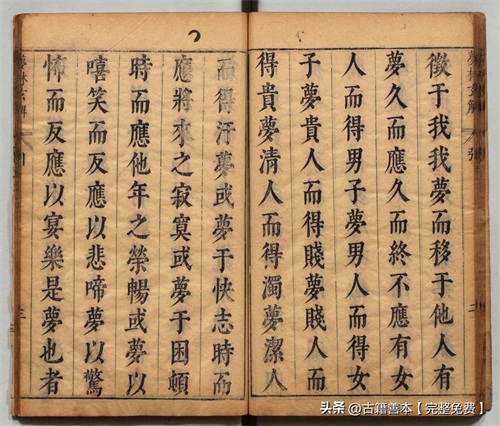 夢林玄解
二
徵于我我夢而移于他人有
夢久而應久而終不應有女
人而得男子夢男人而得女
子夢貴人而得賤夢賤人而
得貴夢清人而得濁夢潔人
而得汙夢或夢于快志時而
應將來之寂寞或夢于困頓
時而應他年之榮暢或夢以
嘻笑而反應以悲啼夢以驚
怖而反應以宴樂是夢也者
夢林玄解
三
头条 @古籍善本【完整免费】